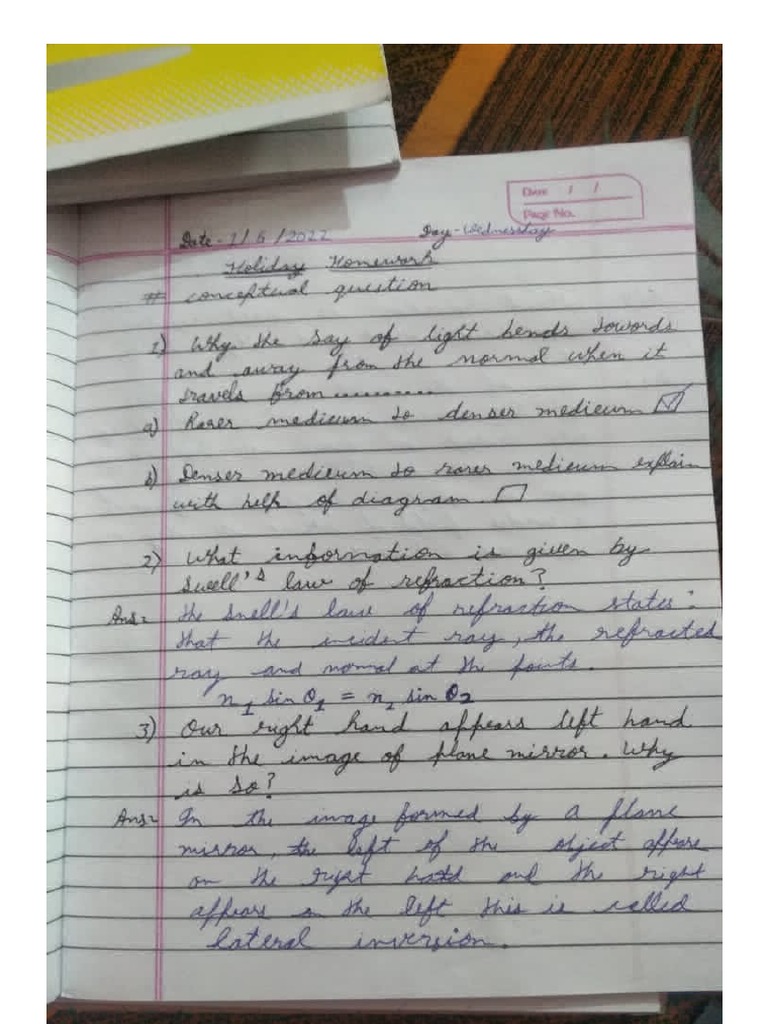 Date / /
Page No.
Date - 1/6/2022 Day - Wednesday
Holiday Homework
# conceptual question
1) Why the ray of light bends towards
and away from the normal when it
travels from ..........
a) Rarer medieum to denser medieum
b) Denser medieum to rarer medieum explain
with help of diagram.
2) What information is given by
Snell's law of refraction?
Ans= the snell's law of refraction states:
that the incident ray, the refracted
ray and normal at the points.
n₁ sin θ₁ = n₂ sin θ₂
3) Our right hand appears left hand
in the image of plane mirror. Why
is so?
Ans= In the image formed by a plane
mirror, the left of the object appears
on the right and the right
appears on the left this is called
lateral inversion.